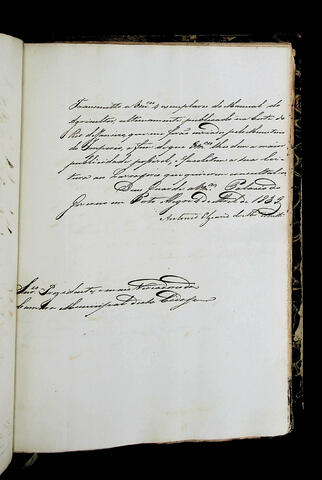 Transmitto a Vm.ces 4 exemplares do Manual do
Agricultor, ultimamente publicado na Corte do
Rio de Janeiro, que me forão enviados pelo Ministerio
do Imperio, a fim de que Vm.ces lhe dem a maior
publicidade possivel, e facilitem a sua lei-
tura aos Lavradores que quizerem consultal-os
Deos Guarde a Vm.ces Palacio do
Governo em Porto Alegre de Abril de 1839
Antonio Elzario de
Snr.es Presidente, e mais Vereadores da
Camara Municipal desta Cidade